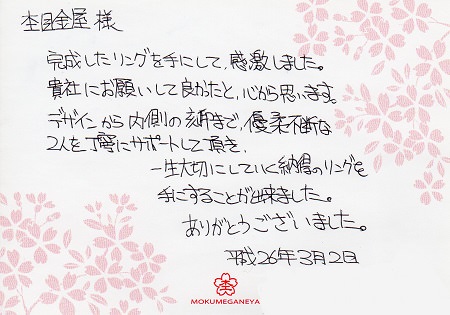 杢目金屋 様
完成したリングを手にして、感激しました。
貴社にお願いして良かったと、心から思います。
デザインから内側の刻印まで、優柔不断な
2人を丁寧にサポートして頂き、
一生大切にしていく納得のリングを
手にすることが出来ました。
ありがとうございました。
平成26年3月2日
MOKUMEGANEYA